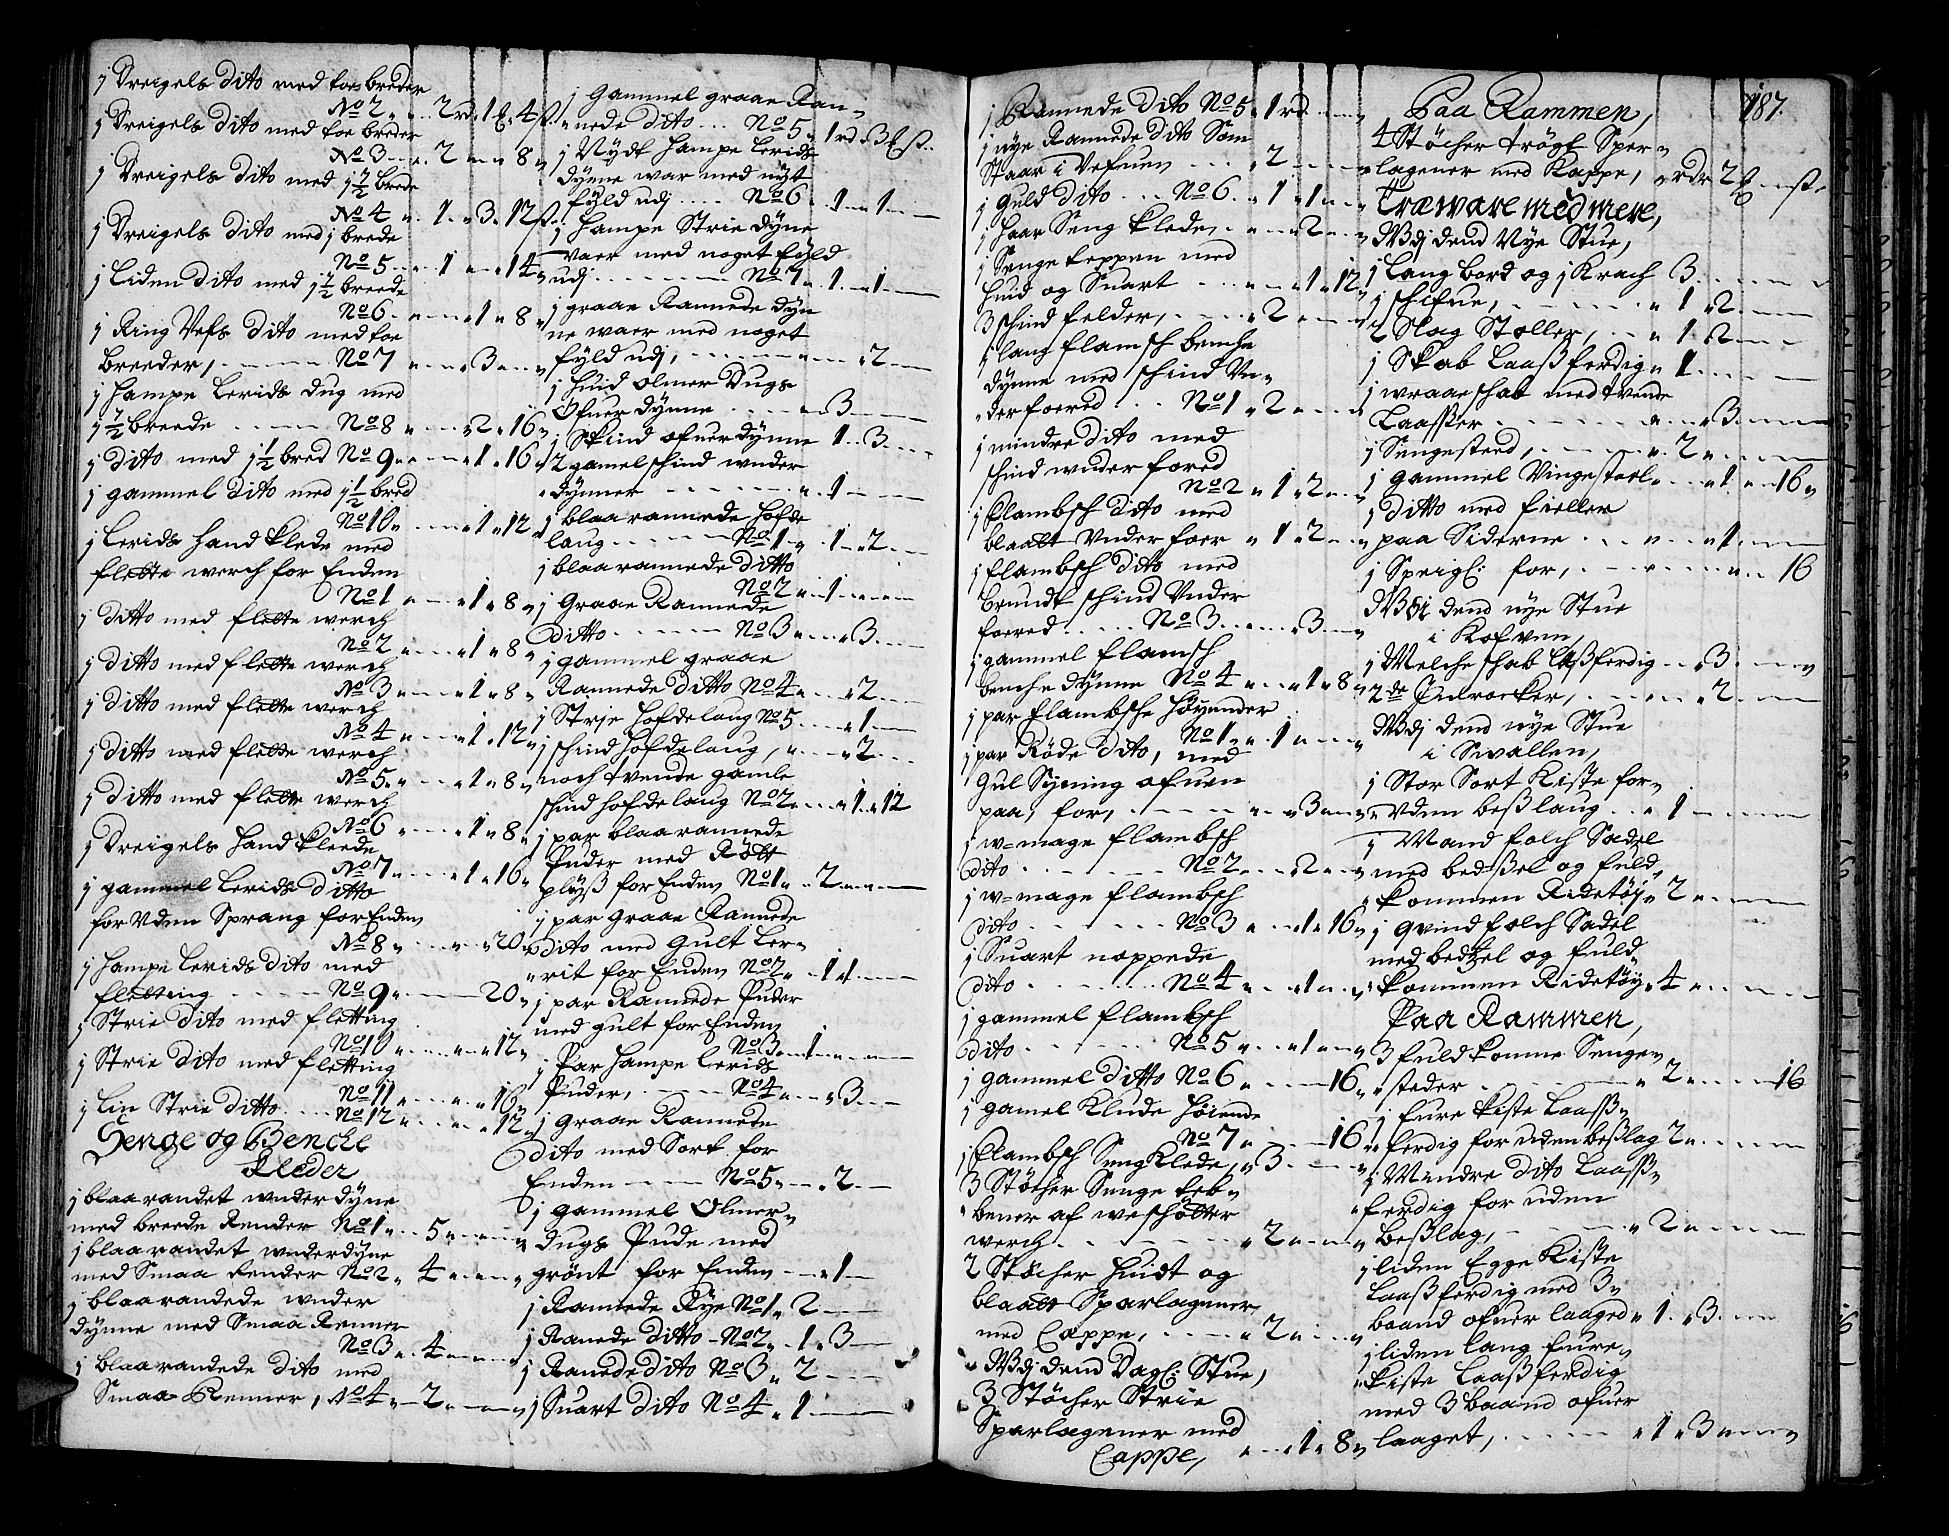 j Dreigels dito med foe breder
No 2 . . 2 rd 1 . 4 s.
j Dreigels dito med foe breder
No 3 . . 2 . . 8
j Dreigels dito med j½ brede
No 4 . . 1 . 3 . 12 s.
j Dreigels dito med j brede
No 5 . . 1 . . 14
j Liden dito med j½ breede
No 6 . . . 1 . 8
j Ring Vefs dito med foe
breeder, No 7 . . 3
j Hampe Lerids Dug med
j½ breede No 8 . . 2 . 16
j dito med j½ bred No 9 . . 1 . 16
j gammel dito med j½ bred
No 10 . . 1 . 12
j Lerids Handklede med
flette werch for Enden
No 1 . . 1 . 8
j ditto med flette werch
No 2 . . 1 . 8
j ditto med flette werch
No 3 . . 1 . 8
j ditto med flette werch
No 4 . . 1 . 12
j ditto med flette werch
No 5 . . 1 . 8
j ditto med flette werch
No 6 . . 1 . 8
j Dreigels Handkleede
No 7 . . 1 . 16
j gammel Lerids ditto
for uden Sprang for Enden
No 8 . . . 20
j Hampe Lerids dito med
fletting No 9 . . 20
j Strie dito med fletting
No 10 . . . 12
j Strie dito med fletting
No 11 . . . 16
j Lin Strie ditto No 12 . . . 12
Senge og Bencke
Kleder
j blaa randet underdyne
med breede Render No 1 . 5
j blaa randet underdyne
med Smaa Render No 2 . 4
j blaa randede under
dynne med Smaa Renner
No 3 . 4
j blaa randede dito med
Smaa Renner, No 4 . 2
j Gammel graae Ran-
nede dito No 5 . 1 rd 3
j Nydt Hampe Lerids
dynne waer med nyt
fyld udj No 6 . 1 . 1
j Hampe Strie dyne
waer med noget fyld
udj No 7 . 1 . 1
j graae Rannede dyn
ne waer med noget
fyld udj, . . 2
j Huid Olmer Dugs
Ofuer dynne . . 3
j Skind ofuer dynne 1 . 3
2 gamel schind under
dynner . 1
j blaa rannede Hofde
laug No 1 . 1 . 2
j blaa rannede ditto
No 2 . 1
j Graae Rannede
ditto No 3 . . 3
j gammel graae
Rannede ditto No 4 . . 2
j Strie Hofdelaug No 5 . . 1
j schind Hofdelaug, . . 2
noch tvende gamle
schind hofdelaug No 2 . . 1 . 12
j par blaa rannede
Puder med Rødt
plyss for Enden No 1 . 2
j par graae Rannede
dito med Gult Ler-
rit for Enden No 2 . 1 . 1
j par Rannede Puder
med gult for Enden
No 3 . 1
j Par Hampe Lerids
Puder, No 4 . . 3
j Graae Rannede
dito med Sort for
Enden No 5 . . 2
j gammel Olmer-
dugs Pude med
grønt for Enden . . 1
j Rannede Rye No 1 . 2
j Ranede ditto No 2 . 1 . 3
j Ranede dito No 3 . 2
j Suart dito No 4 . 1
j Rannede dito No 5 . 1 rd
j nye Rannede dito Som
Staar i Vefuen . 2
j Guld dito No 6 . 1 . 1
j Haar Seng klede, . . 2
j Senge teppen med
Huid og Suart . . 1 . 12
3 schind felder, . 2
j lang flamsch benche
dynne med schind Un-
derfoered No 1 . 2
j mindre dito med
schind under fored
No 2 . 1 . 2
j flambsch dito med
blaatt Underfoer . 1 . 2
j flambsch dito med
brundt schind Under
foered No 3 . . 3
j gammel flamsch
benche dynne No 4 . . 1 . 8
j par flambsche Høyender
No 1 . 1
j par Røde dito, med
Gul Syening ofuen
paa, for, . . 3
j w=mage flambsch
dito No 2 . . 2
j w=mage flambsch
dito No 3 . . 1 . 16
j Suart noppede
dito No 4 . . 1
j gammel flambsch
dito No 5 . . 1
j gammel ditto No 6 . . 16
j gamel Klude Høiende
No 7 . . 16
j flambsch Sengklede, . 3
3 Støcher Senge teb-
bener af weschotter
werch . 2
2 Støcher Huidt og
blaatt Sparlagener
med Cappe, . 2
Udj dend Dagl: Stue,
3 Støcher Strie
Sparlagener med
Cappe, . . 1 . 8
187.
Paa Rammen,
4 Støcher trøgt Sper-
lagener med Kappe, 2
Træware med mere,
Udj dend Nye Stue,
j Lang bord og j Krach 3
j schifue, . 1 . 2
2 Slag Stoller, . 1 . 2
j Skab Laass ferdig . 1
j wraae schab med tvende
Laasser . . 3
j Sengested, . 2
j gammel Vingestoel . . 1 . 16
j ditto med fieller
paa Siderne . . 1
j Speigl: for, . . . 16
Udj dend nye Stue
i Kofven,
j Melche schab Lassferdig . . 3
2de Inrocker, . . 2
Udj dend nye Stue
i Swallen,
j Stor Sort Kiste for-
uden besslaug . 1
j Mand folch Sadel
med bedssel og fuld-
kommen Ridetøy . 2
j qvind folch Sadel
med bedtzel og fuld-
kommen Ridetøy . 4
Paa Rammen,
3 fuldkomne Senge-
steder . 2 . . 16
j fure kiste Laass-
ferdig for uden besslag 2
j Mindre dito Laass-
ferdig for uden
besslag, . 2
j liden Egge Kiste
Laassferdig med 3
baand ofuer laaged . 1 . 3
j liden lang fuure
kiste Laassferdig
med 3 baand ofuer
laaget, . 1 . 3